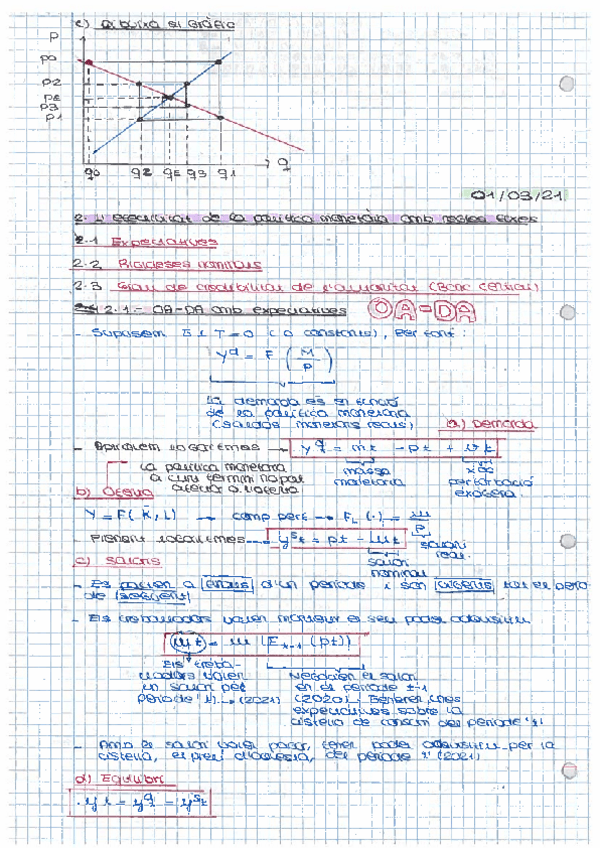 c) Dibuixa el gràfic
P
p0
p2
pE
p3
p1
q
q0 q2 qE q3 q1
01/03/21
2. L'efectivitat de la política monetària amb regles fixes
2.1 Expectatives
2.2 Rigideses nominals
2.3 Grau de credibilitat de l'autoritat (Banc central)
2.1.- OA-DA amb expectatives OA=DA
- Suposem G i T=0 (o constants), per tant:
Y^d = F (M/P)
La demanda és en funció
de la política monetària
(saldos monetaris reals)
a) Demanda
- Apliquem logaritmes → y^d_t = mt - pt + vt
La política monetària
a curt termini no pot
afectar a l'oferta
massa
monetària
xoc
pertorbació
exògena.
b) Oferta
Y = F(K̄, L) → comp. perf → F_L(·) = w/P
salari
real.
- Prenent logaritmes → y^s_t = pt - wt
salari
nominal
c) Salaris
- Es pacten a finals d'un període i són vigents tot el període següent
- Els treballadors volen mantenir el seu poder adquisitiu
wt = w (E_{t-1}(pt))
Els treba-
lladors volen
un salari pel
període 't' → (2021)
Negocien el salari
en el període t-1
(2020). Generen unes
expectatives sobre la
cistella de consum del període 't'
- Amb el salari volen poder tenir poder adquisitiu per la
cistella, el preu d'aquesta, del període 't' (2021)
d) Equilibri
· yt = y^d_t = y^s_t